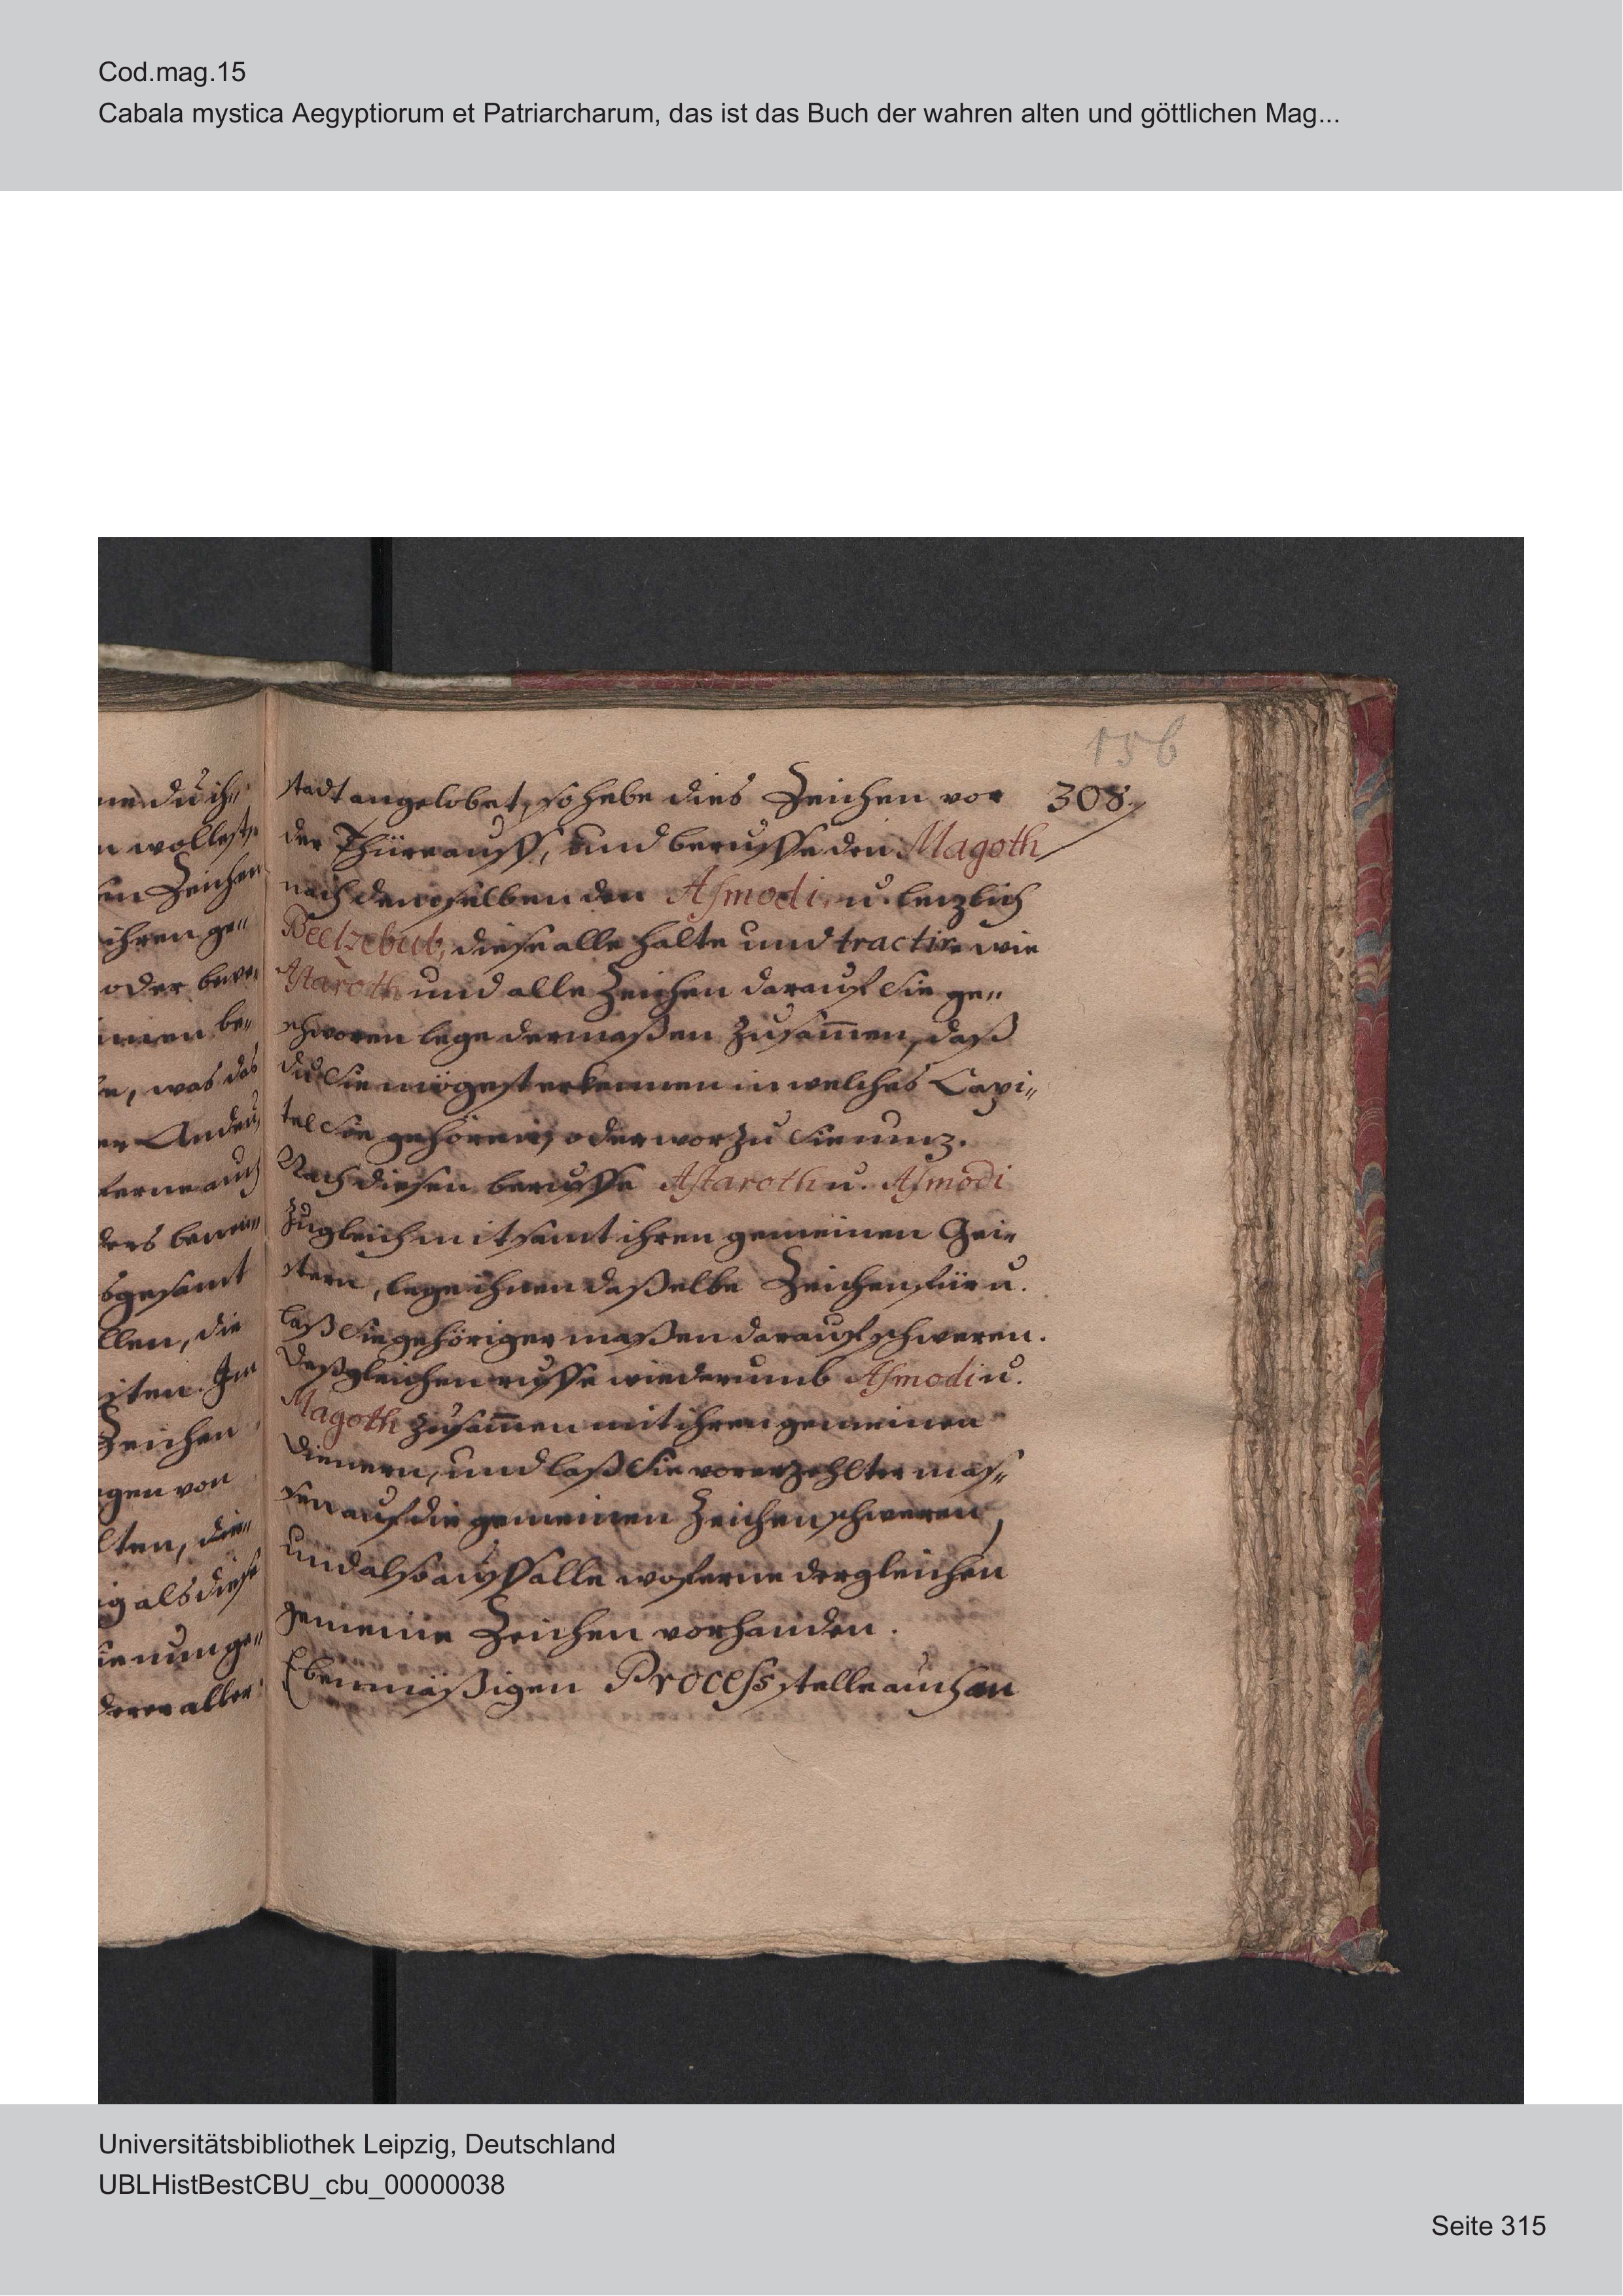 Cod.mag.15
Cabala mystica Aegyptiorum et Patriarcharum, das ist das Buch der wahren alten und göttlichen Mag...
156
308.
ne du ih„
n wollest,
en Zeichen
ihren ge„
oder bere„
men be„
e, was das
er Andeu„
ferne auch
ders
sgesamt
llen, die
iten. Im
Zeichen
gen von
lten, die„
ig als diese
ge„
derer aller
stadt angelobet, so hebe dies Zeichen vor
der Thüre auff, und beruffe den Magoth
nach demselben den Asmodi, u. letzlich
Beelzebub, diese alle halte und tractire wie
Astaroth und alle Zeichen darauf Sie ge„
schworen lege dermaßen zusam̄en, daß
du Sie mögest erkennen in welches Capi„
tel Sie gehören, oder worzu Sie nutz.
Nach diesen beruffe Astaroth u. Asmodi
zugleich mit samt ihren gemeinen Gei„
stern, lege ihnen daßelbe Zeichen für u.
laß Sie gehöriger maßen darauf schweren.
Deßgleichen ruffe wiederumb Asmodi u.
Magoth zusam̄en mit ihren gemeinen
Dienern, und laß Sie vorerzehlter mas„
sen auf die gemeinen Zeichen schweren,
und also auff alle woferne dergleichen
gemeine Zeichen vorhanden.
Ebenmäßigen Process stelle auch an
Universitätsbibliothek Leipzig, Deutschland
UBLHistBestCBU_cbu_00000038
Seite 315